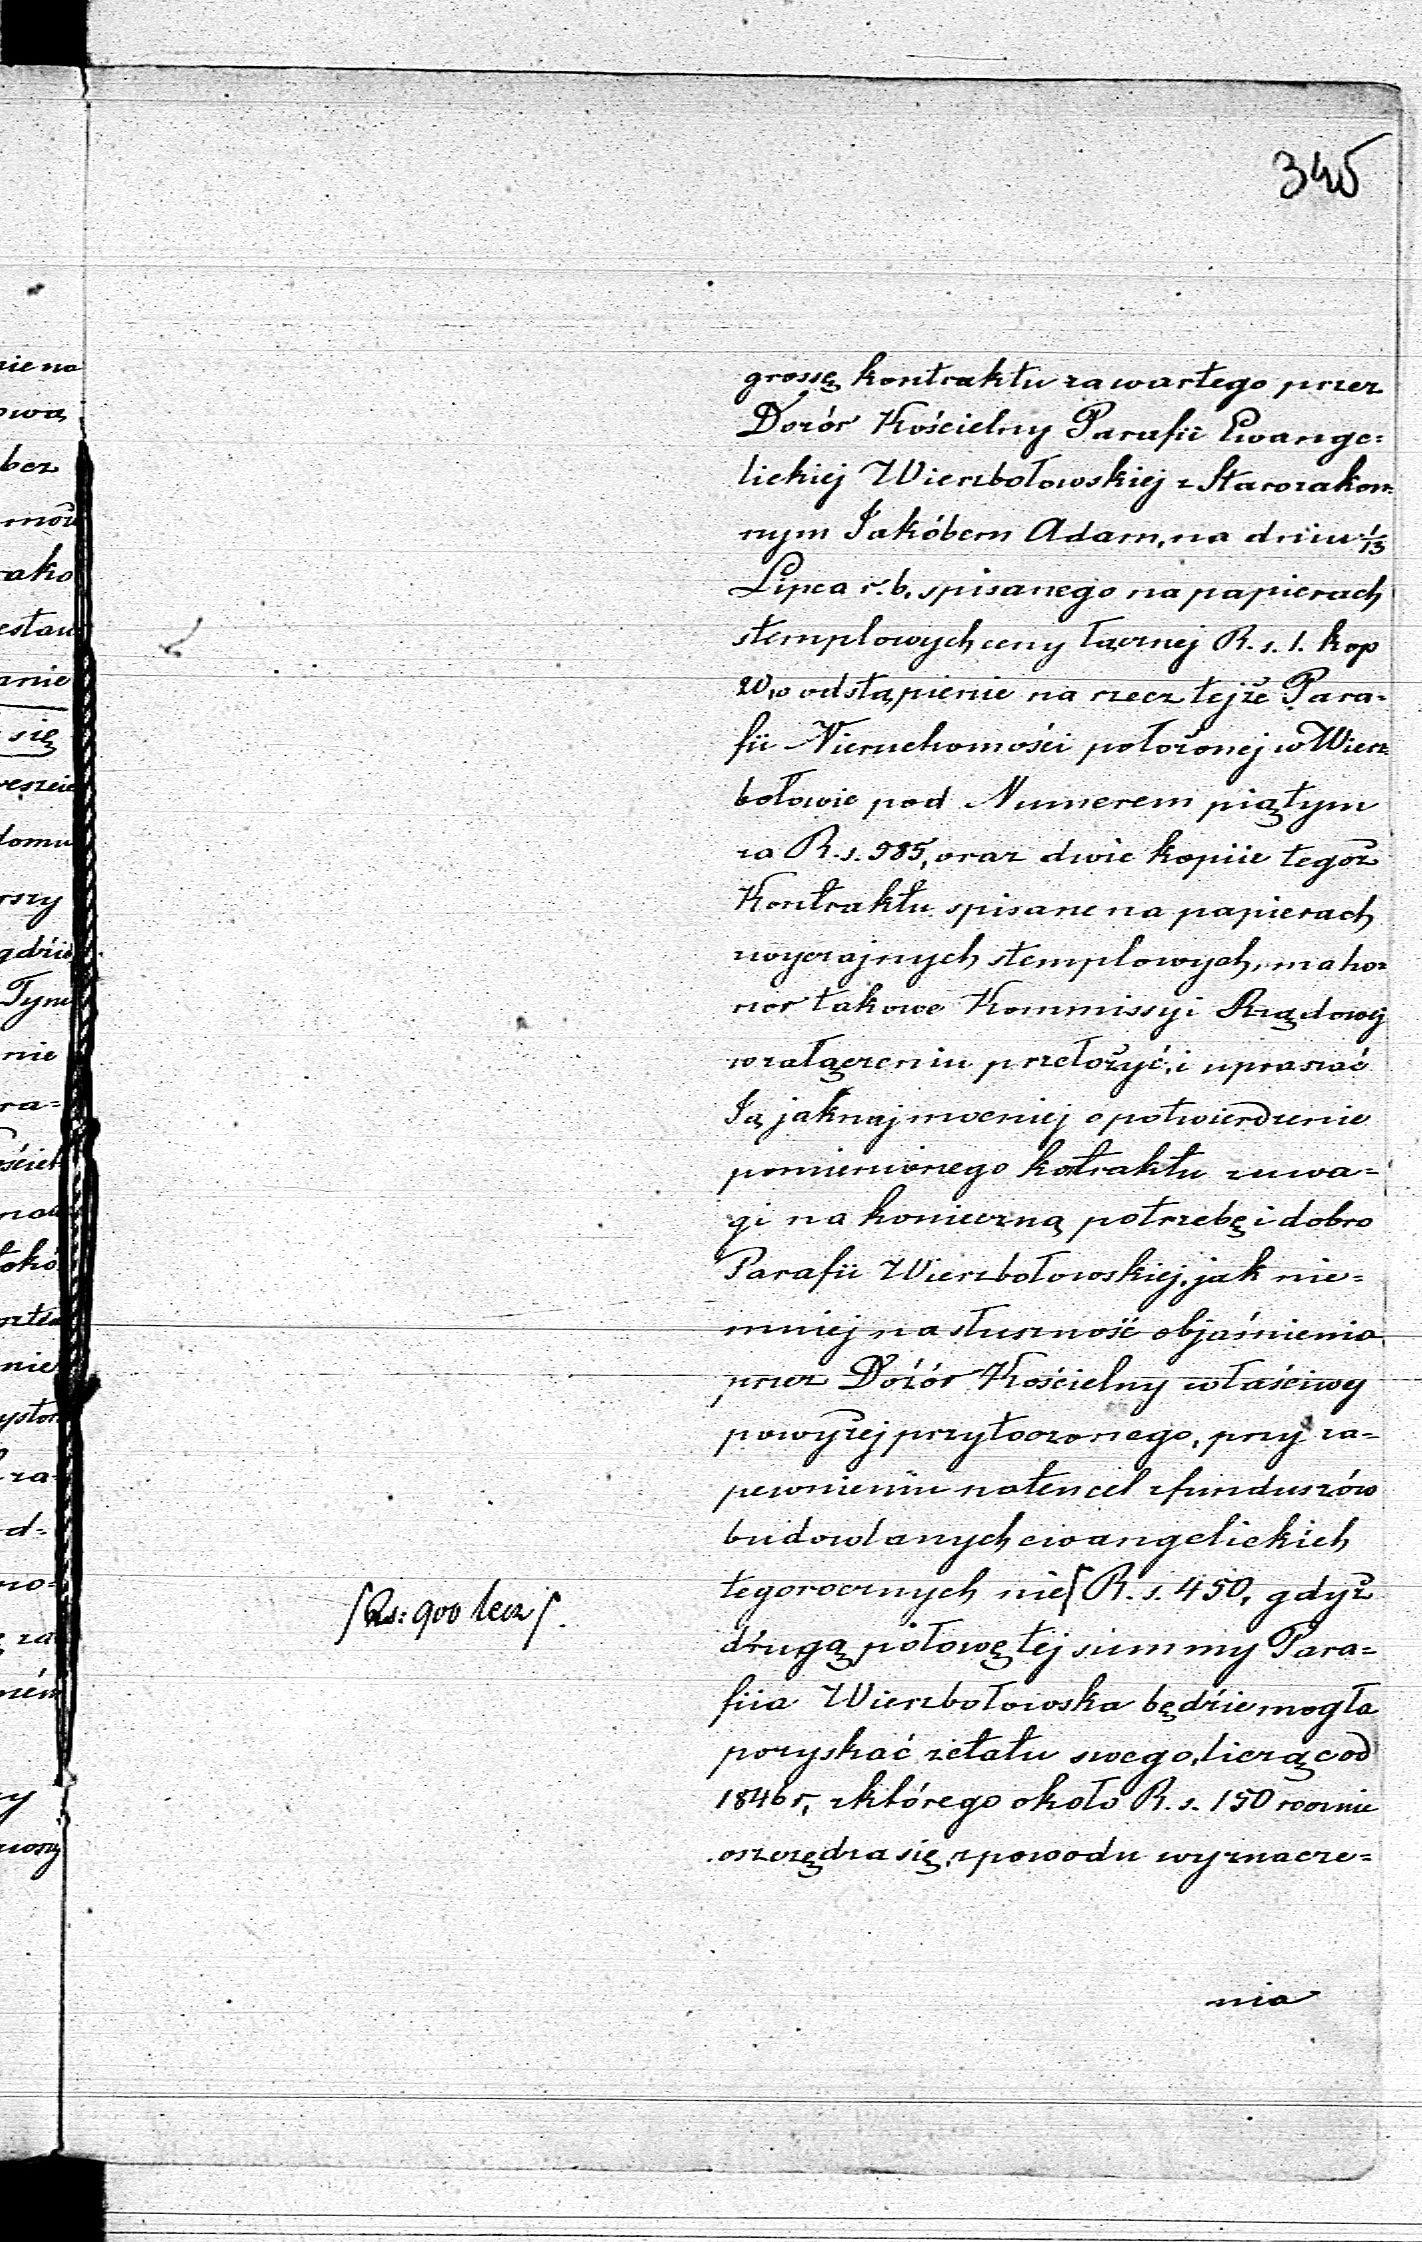 345
grossę kontraktu zawartego przez
Dozór Kościelny Parafii Ewange=
lickiej Wierzbołowskiej z Starozakon=
nym Jakóbem Adam, na dniu 1/13
Lipca r. b. spisanego na papierach
stemplowych ceny łącznej R. s. 1. kop
w odstąpienie na rzecz tejże Para-
fii Nieruchomości położonej w Wierz=
bołowie pod Numerem piątym
za R. s. 985, oraz dwie kopiie tegoż
Kontraktu spisane na papierach
zwyczajnych stemplowych, ma ho=
nor takowe Kommissyi Rządowej
w załączeniu przełożyć, i upraszać
Ją jaknajmocniej o potwierdzenie
pomienionego kotraktu z uwa=
gi na konieczną potrzebę i dobro
Parafii Wierzbołowskiej, jak nie=
mniej na słuszność objaśnienia
przez Dozór Kościelny właściwy
powyżej przytoczonego, przy za=
pewnieniu na ten cel z funduszów
budowlanych ewangelickich
tegorocznych nie ⌠ R. s. 450, gdyż
⌠ Rs: 900 lecz ⌠.
drugą połowę tej summy Para=
fiia Wierzbołowska będzie mogła
pozyskać z etatu swego, licząc od
1846 r, z którego około R. s. 150 rocznie
oszczędza się, z powodu wyznacze=
nia